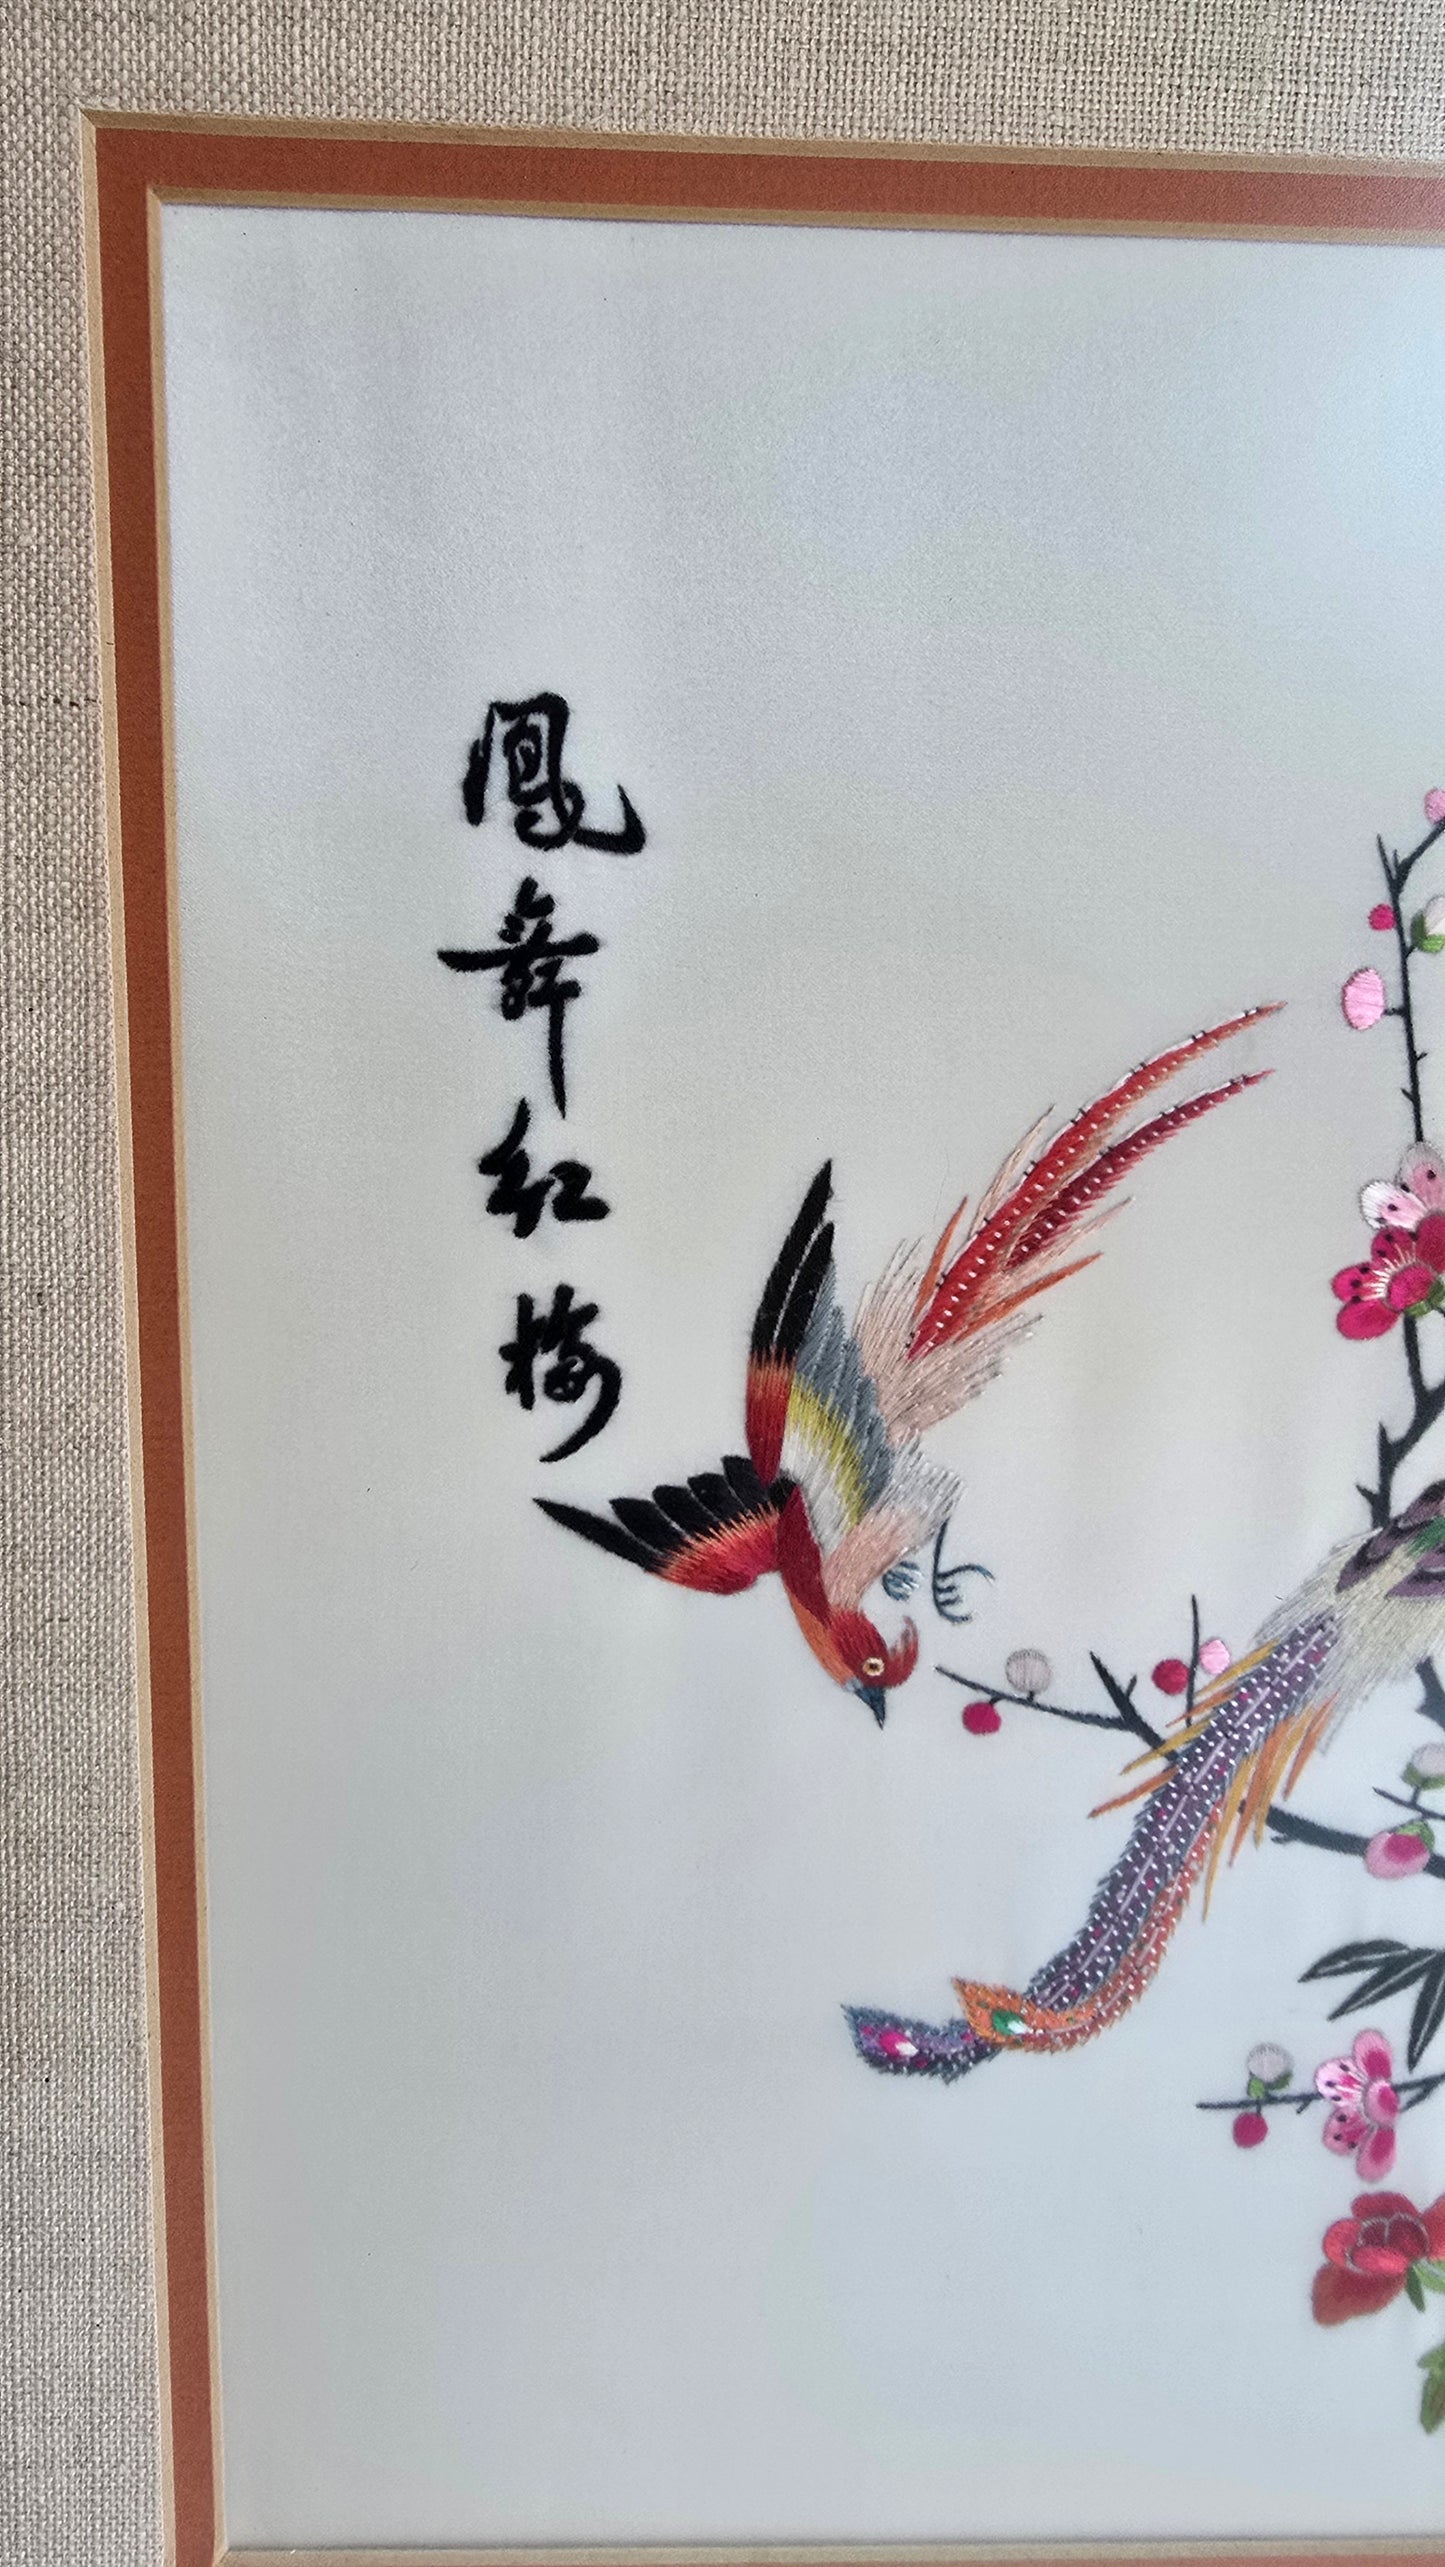 鳳舞紅梅